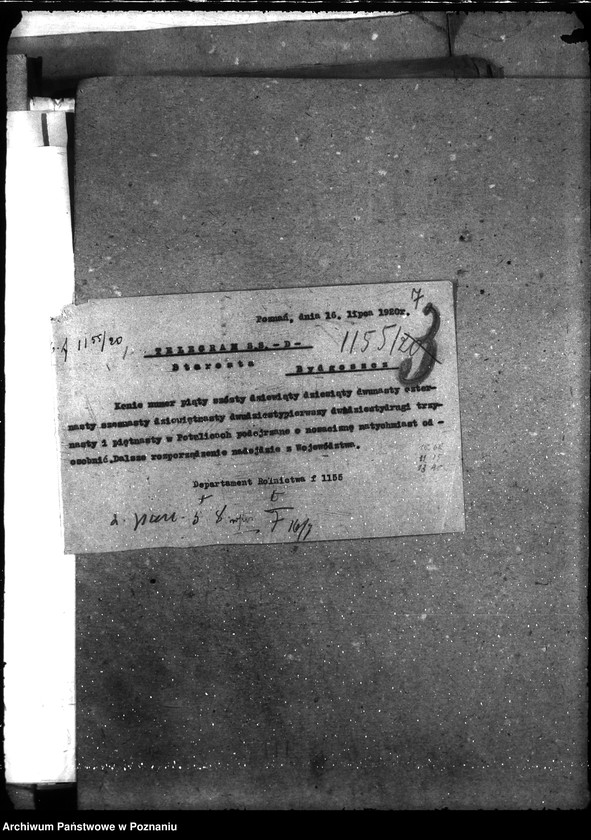 7
Poznań, dnia 16. lipca 1920r.
f 1155/20
1155/20
3
TELEGRAM S.S. -D-
Starosta Bydgoszcz
Konie numer piąty szósty dziewiąty dziesiąty dwunasty czter-
nasty szesnasty dziewiętnasty dwudziestypierwszy dwudziestydrugi trzy-
nasty i piętnasty w Potulicach podejrzane o nosaciznę natychmiast od -
osobnić.Dalsze rozporządzenie nadejdzie z Województwa.
Departament Rolnictwa f 1155
16/7
Archiwum Państwowe w Poznaniu